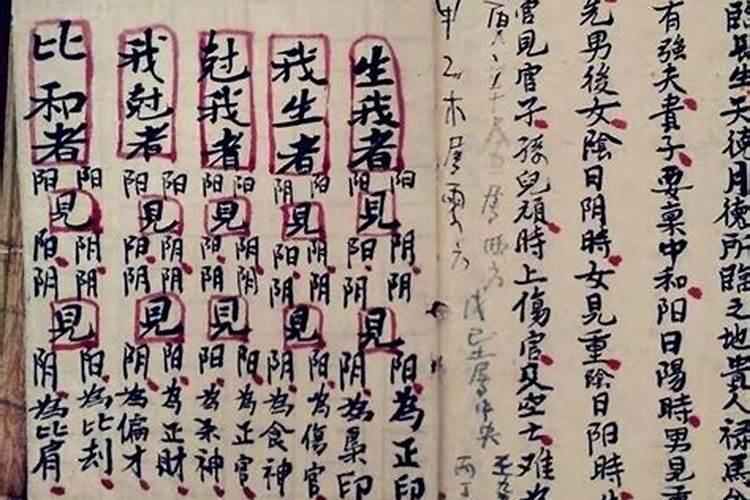 臨長生天德月德所臨之地貴人祿馬
有強夫貴子要稟中和阳日陽時男見
先男後女陰日阴時女見重陰日阳時
官見官子孫兒頑時上傷官又空亡難
戊己土屬中央
甲乙木屬
生我者
阳見阴阴見阳為正印
阳見阳阴見阴為梟印
我生者
阳見阴阴見阳為傷官
阴見阳阴見阴為食神
尅我者
阳見阴阴見阳為正官
阳見阳阴見阳為杀神
我尅者
阳見阴阴見阳為正財
阳見阳阴見阴為偏才
比和者
阳見阴阴見阳為比刦
阳見阳阴見阴為比肩